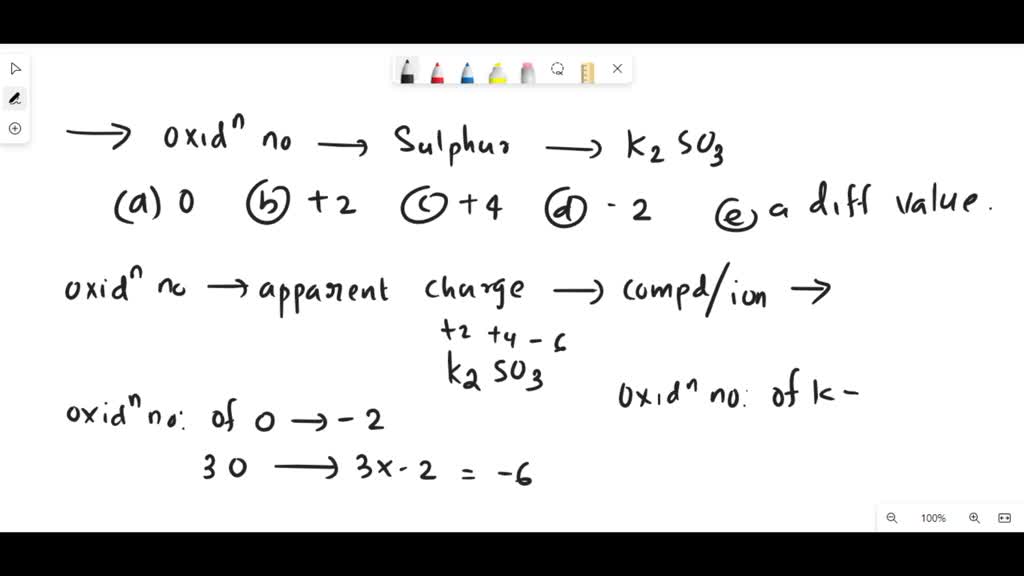 → oxidⁿ no → Sulphur → K₂SO₃
(a) 0 (b) +2 (c) +4 (d) -2 (e) a diff value.
oxidⁿ no → apparent charge → compd/ion →
+2 +4 -6
K₂SO₃
oxidⁿ no: of K -
oxidⁿ no: of O → -2
3O → 3x-2 = -6
100%